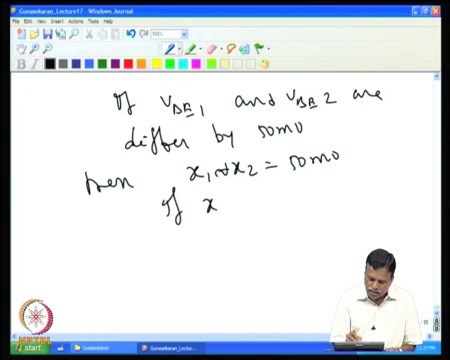 Gunasekaran_Lecture17 - Windows Journal
File Edit View Insert Actions Tools Help
100%
B I
If VBE1 and VBE2 are
differ by 50mV
then x1 - x2 = 50mV
If x
start
Gunasekaran
Gunasekaran_Lectu...
NPTEL